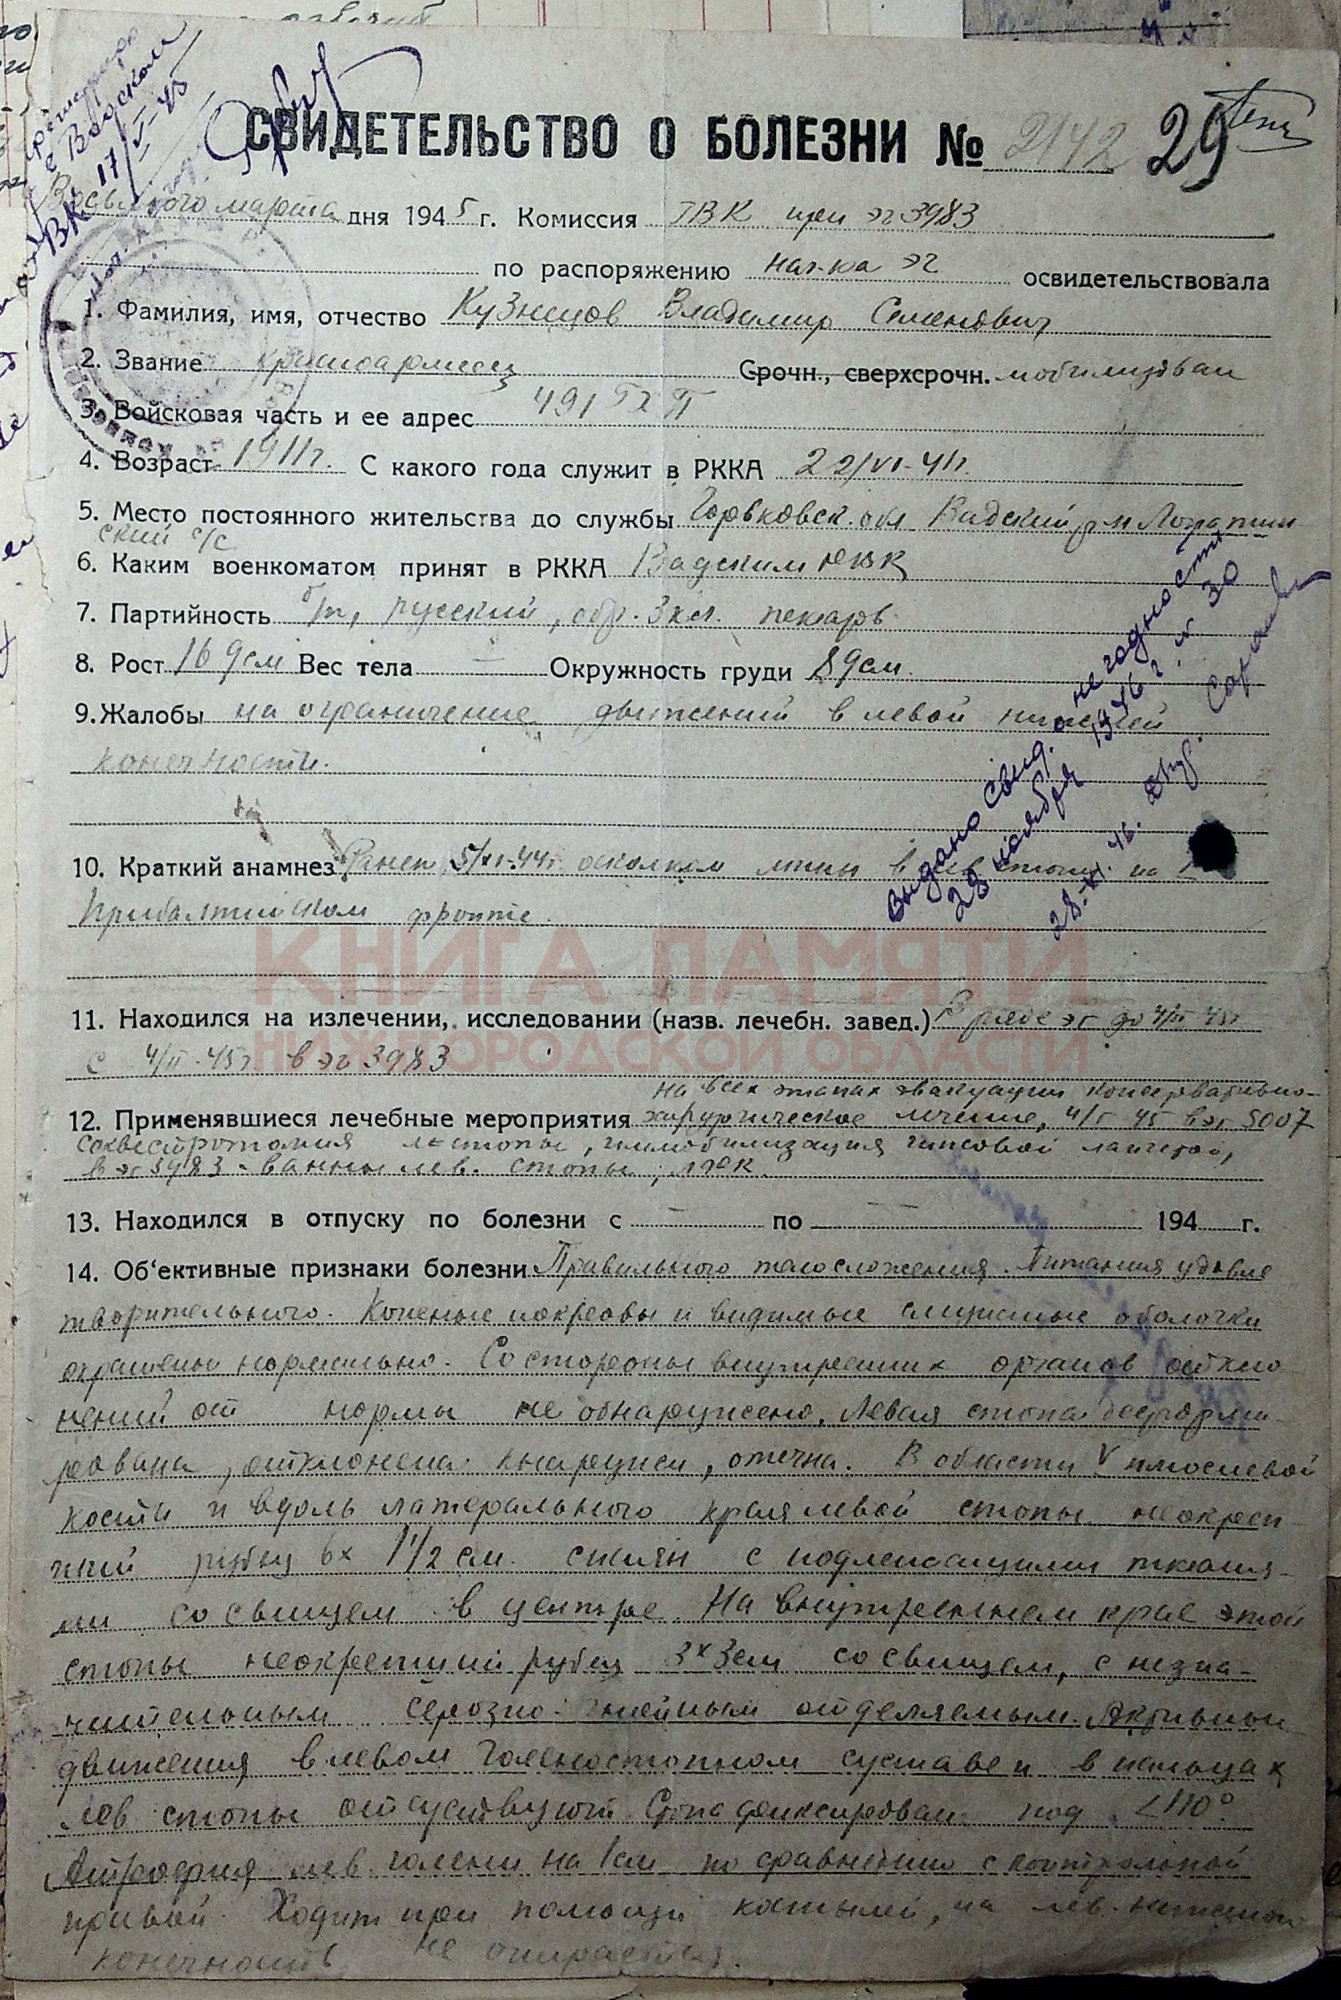 СВИДЕТЕЛЬСТВО О БОЛЕЗНИ № 2142 29
Восьмого марта дня 1945 г. Комиссия ГВК при эг 3983
по распоряжению нач-ка эг освидетельствовала
1. Фамилия, имя, отчество Кузнецов Владимир Семенович
2. Звание красноармеец Срочн., сверхсрочн. мобилизован
3. Войсковая часть и ее адрес 491
4. Возраст 1911 г. С какого года служит в РККА 22/VI-41 г.
5. Место постоянного жительства до службы Горьковск. обл Вадский р-н Лопатин
ский с/с
6. Каким военкоматом принят в РККА Вадским РВК
7. Партийность б/п, русский, обр. 3 кл. пекарь
8. Рост 169 см Вес тела — Окружность груди 89 см.
9. Жалобы на ограничение движений в левой нижней
конечности.
10. Краткий анамнез Ранен 5/XI-44 г. осколком мины в лев стопу на
Прибалтийском фронте.
КНИГА ПАМЯТИ
НИЖЕГОРОДСКОЙ ОБЛАСТИ
11. Находился на излечении, исследовании (назв. лечебн. завед.) В ряде эг до 4/II 45 г
с 4/II-45 г в эг 3983
на всех этапах эвакуации консервативно-
12. Применявшиеся лечебные мероприятия хирургическое лечение, 4/I 45 в эг 5007
секвестротомия л стопы, иммобилизация гипсовой лангетой,
в эг 3983 - ванны лев. стопы,
13. Находился в отпуску по болезни с — по — 194 г.
14. Об'ективные признаки болезни Правильного телосложения. Питания удовле
творительного. Кожные покровы и видимые слизистые оболочки
окрашены нормально. Со стороны внутренних органов откло
нений от нормы не обнаружено. Левая стопа деформи-
рована, отклонена кнаружи, отечна. В области V плюсневой
кости и вдоль латерального края левой стопы неокреп
ший рубец 6х1 1/2 см. спаян с подлежащими тканя-
ми со свищем в центре. На внутреннем крае этой
стопы неокрепший рубец 3х3 см со свищем, с незна-
чительным серозно-гнойным отделяемым. Активные
движения в левом голеностопном суставе и в пальцах
лев стопы отсутствуют. Стопа фиксирован под <110°
Атрофия лев. голени на 1 см по сравнению с контрольной
правой. Ходит при помощи костылей, на лев. нижнюю
конечность не опирается.
Выдано свид. о негодности
28 ноября 1946 г. № 30
28-XI. 46.
17/V-45